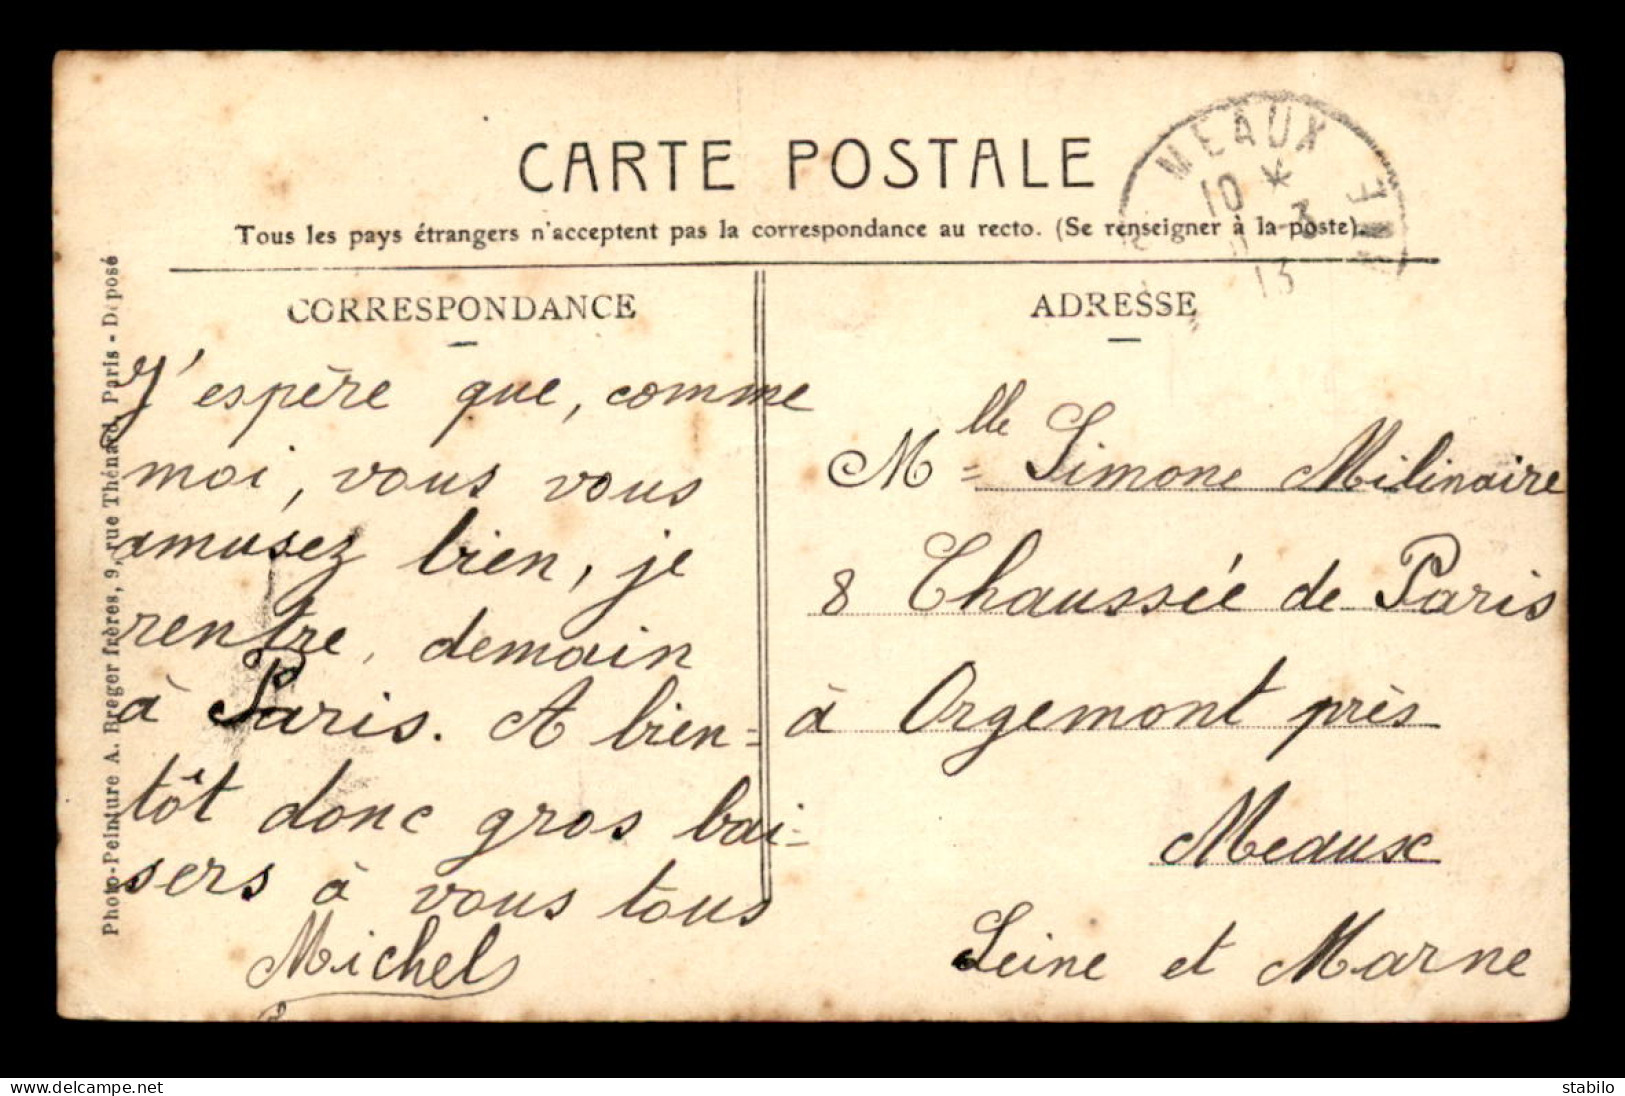 CARTE POSTALE
Tous les pays étrangers n'acceptent pas la correspondance au recto. (Se renseigner à la poste).
MEAUX
10 * 3
13
CORRESPONDANCE
J'espère que, comme
moi, vous vous
amusez bien, je
rentre, demain
à Paris. A bien=
tôt donc gros bai-
sers à vous tous
Michel
ADRESSE
Mlle Simone Milinaire
8 Chaussée de Paris
à Orgemont près
Meaux
Seine et Marne
Photo-Peinture A. Breger frères, 9, rue Thénard, Paris - Déposé
www.delcampe.net
stabilo